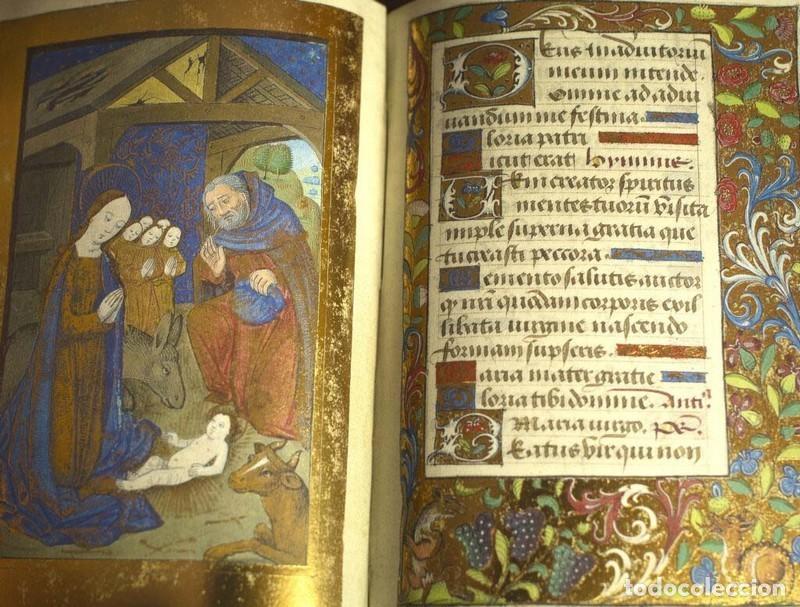 Deus in adiutoriu
meum intende.
Domine ad adiu
uandum me festina.
Gloria patri
Sicut erat hymnus.
Veni creator spiritus
mentes tuorum visita
imple superna gratia que
tu creasti pectora.
Memento salutis auctor
q nri quondam corporis ex il
libata uirgine nascendo
formam sumpseris.
Maria mater gratie
Gloria tibi domine. Anti
O Maria uirgo. ps
Beatus vir qui non
todocoleccion